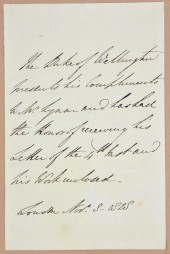 The Duke of Wellington
presents his Compliments
to Mr. Lyman and has had
the Honor of receiving his
Letter of the 4th Inst and
his Work inclosed.
London Nov. 5